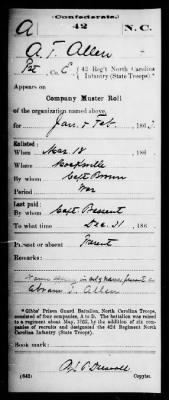 Confederate.
A 42 N.C.
A. T. Allen
Pvt, Co. E, 42 Reg't North Carolina
Infantry (State Troops).*
Appears on
Company Muster Roll
of the organization named above,
for Jan & Feb, 186
Enlisted:
When Mar 18, 186
Where Mocksville
By whom Capt Brown
Period War
Last paid:
By whom Capt
To what time Dec 31, 186
Present or absent Present
Remarks:
Abram T. Allen
*Gibbs' Prison Guard Battalion, North Carolina Troops,
consisted of four companies, A to D. The battalion was raised
to a regiment about May, 1862, by the addition of six com-
panies of recruits and designated the 42d Regiment North
Carolina Infantry (State Troops).
Book mark:
(642) Copyist.